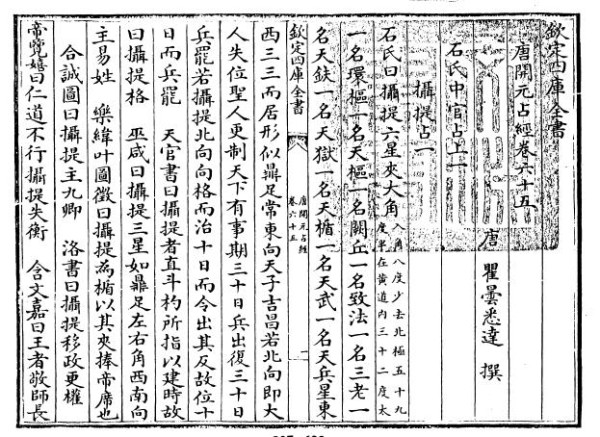 欽定四庫全書
唐開元占經卷六十五
唐 瞿曇悉達 撰
石氏中官占上一
攝提占一
石氏曰攝提六星夾大角入角八度少去北極五十九
度半在黄道内三十二度太
一名環樞一名天樞一名闕丘一名致法一名三老一
名天鈇一名天獄一名天楯一名天武一名天兵星東
西三三而居形似鼎足常東向天子吉昌若北向即大
人失位聖人更制天下有事期三十日兵出復三十日
欽定四庫全書
唐開元占經
卷六十五
一
兵罷若攝提北向向格而治十日而令出其反故位十
日而兵罷 天官書曰攝提者直斗杓所指以建時故
曰攝提格 巫咸曰攝提三星如鼎足左右角西南向
主易姓 樂緯叶圖徴曰攝提為楯以其夾捧帝席也
合誠圖曰攝提主九卿 洛書曰攝提移政更權
帝覽嬉曰仁道不行攝提失衡 含文嘉曰王者敬師長